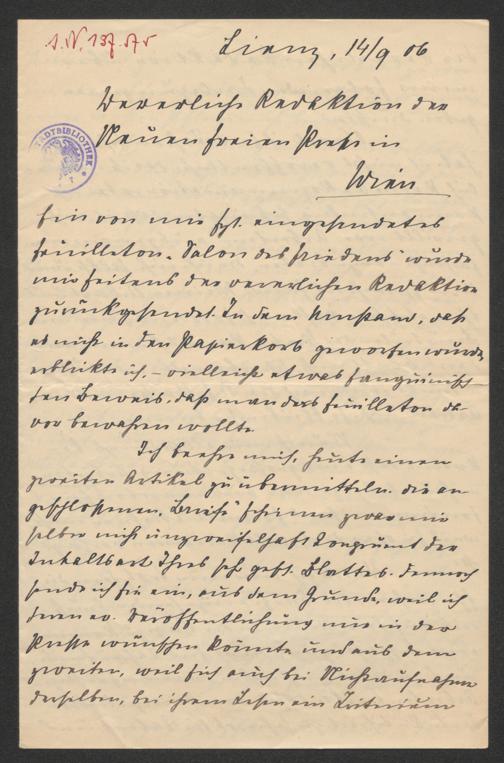 I.N. 137.575
Lienz, 14/9 06
Verehrliche Redaktion der
Neuen freien Presse in
Wien
Ein von mir jgt. eingesendetes
Feuilleton „Salon des Friedens" wurde
mir seitens der verehrlichen Redaktion
zurückgesendet. In dem Umstand, daß
es nicht in den Papierkorb geworfen wurde,
erblickte ich, – vielleicht etwas sanguinisch –
den Beweis, daß man das Feuilleton da-
vor bewahren wollte.
Ich beehre mich, heute einen
zweiten Artikel zu übermitteln. Die an-
geschlossenen „Briefe" scheinen zwar mir
selber nicht unzweifelhaft kongruent der
Inhaltsart Ihres sehr gesch. Blattes. Dennoch
sende ich sie ein, aus dem Grunde, weil ich
deren ev. Veröffentlichung nur in der
Presse wünschen könnte und aus dem
zweiten, weil sich auch bei Nichtaufnahme
derselben, bei ihrem Lesen ein Kriterium